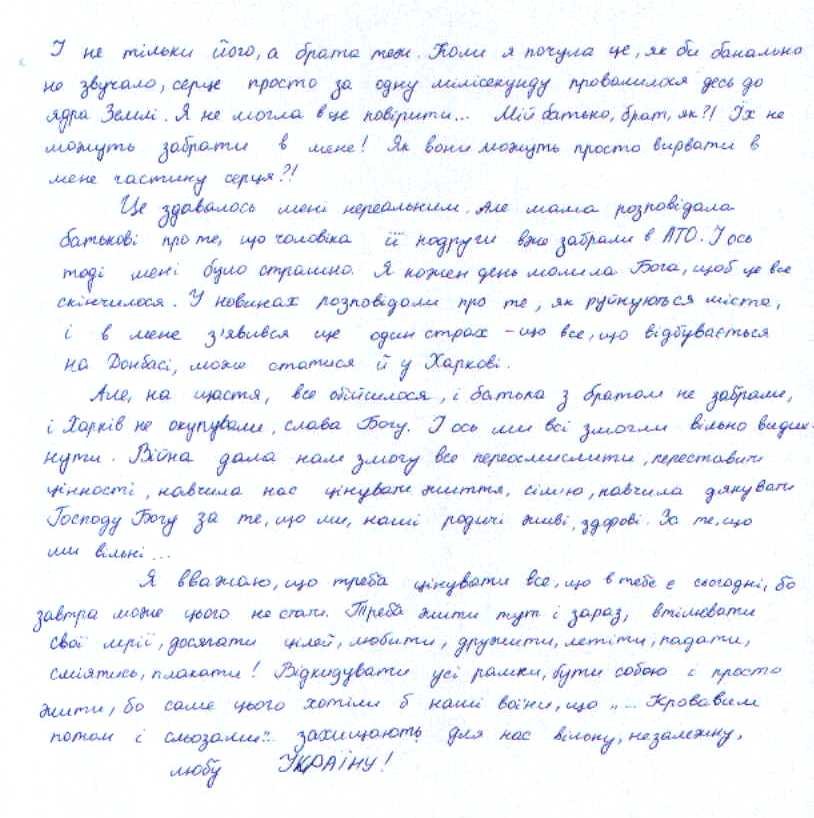 І не тільки його, а брата теж. Коли я почула це, як би банально
не звучало, серце просто за одну мілісекунду провалилося десь до
ядра Землі. Я не могла в це повірити... Мій батько, брат, як?! Їх не
можуть забрати в мене! Як вони можуть просто вирвати в
мене частину серця?!
Це здавалось мені нереальним. Але мама розповідала
батькові про те, що чоловіка її подруги вже забрали в АТО. І ось
тоді мені було страшно. Я кожен день молила Бога, щоб це все
скінчилося. У новинах розповідали про те, як руйнуються міста,
і в мене з'явився ще один страх – що все, що відбувається
на Донбасі, може статися й у Харкові.
Але, на щастя, все обійшлося, і батька з братом не забрали,
і Харків не окупували, слава Богу. І ось ми всі змогли вільно видих-
нути. Війна дала нам змогу все переосмислити, переставити
цінності, навчила нас цінувати життя, сім'ю, навчила дякувати
Господу Богу за те, що ми, наші родичі живі, здорові. За те, що
ми вільні...
Я вважаю, що треба цінувати все, що в тебе є сьогодні, бо
завтра може цього не стати. Треба жити тут і зараз, втілювати
свої мрії, досягати цілей, любити, дружити, летіти, падати,
сміятись, плакати! Відкидувати усі рамки, бути собою і просто
жити, бо саме цього хотіли б наші воїни, що „... Кровавим
потом і сльозами..." захищають для нас вільну, незалежну,
любу УКРАЇНУ!